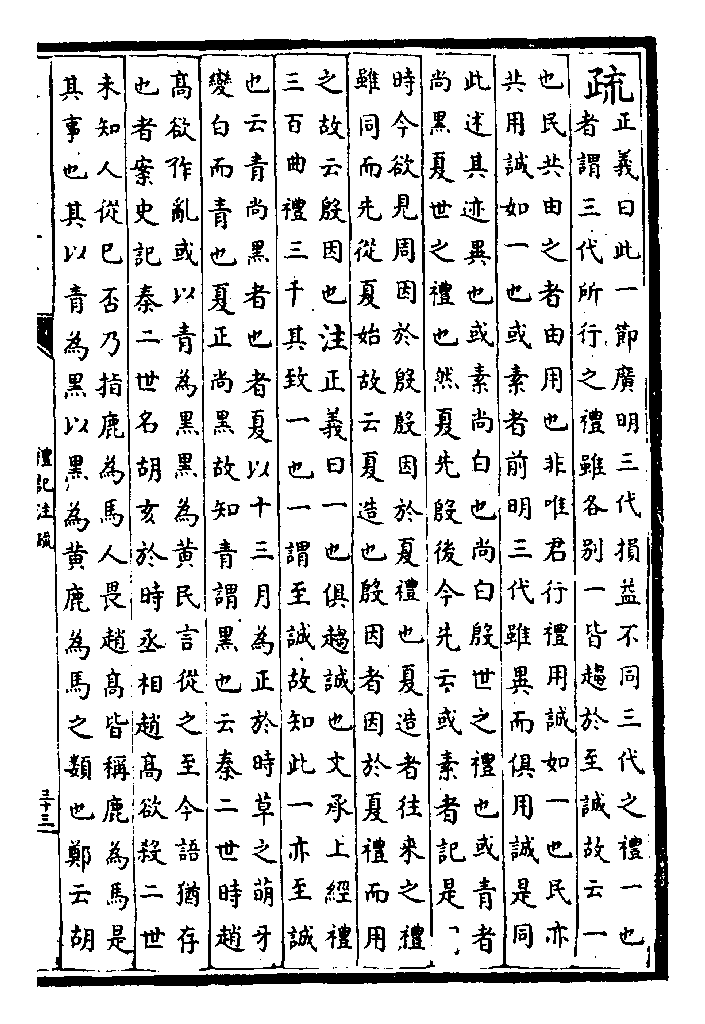 疏
正義曰此一節廣明三代損益不同三代之禮一也
者謂三代所行之禮雖各别一皆趨於至誠故云一
也民共由之者由用也非唯君行禮用誠如一也民亦
共用誠如一也或素者前明三代雖異而俱用誠是同
此述其迹異也或素尚白也尚白殷世之禮也或青者
尚黑夏世之禮也然夏先殷後今先云或素者記是
時今欲見周因於殷殷因於夏禮也夏造者往來之禮
雖同而先從夏始故云夏造也殷因者因於夏禮而用
之故云殷因也注正義曰一也俱趨誠也文承上經禮
三百曲禮三千其致一也一謂至誠故知此一亦至誠
也云青尚黑者也者夏以十三月為正於時草之萌牙
變白而青也夏正尚黑故知青謂黑也云秦二世時趙
髙欲作亂或以青為黑黑為黄民言從之至今語猶存
也者案史記秦二世名胡亥於時丞相趙髙欲殺二世
未知人從已否乃指鹿為馬人畏趙髙皆稱鹿為馬是
其事也其以青為黑以黑為黄鹿為馬之類也鄭云胡
禮記注疏
三十三